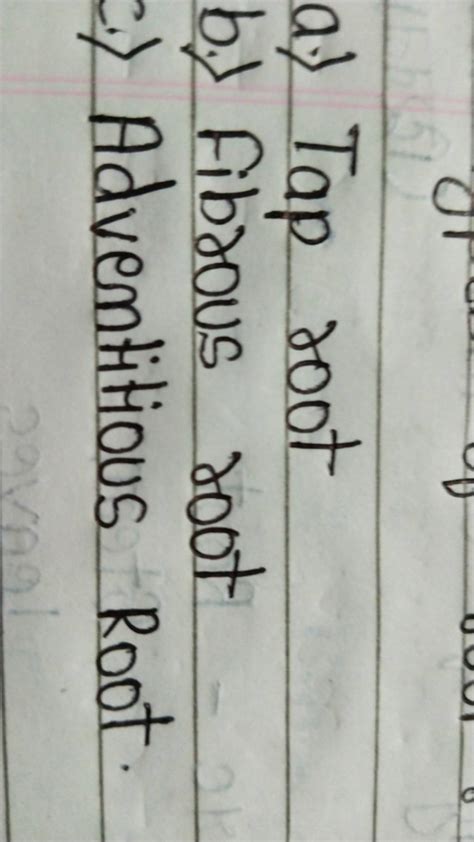 a.) Tap root
b.) Fibrous root
c.) Adventitious Root.